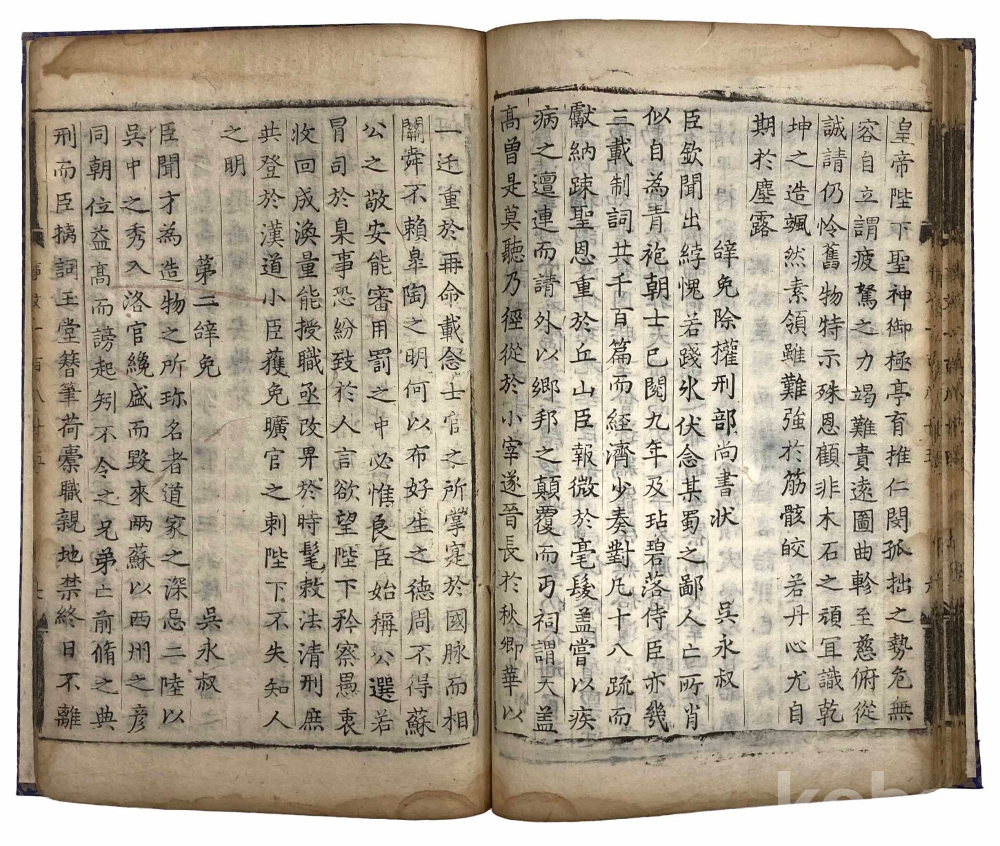 皇帝陛下聖神御極亭育推仁閔孤拙之勢危無
容自立謂疲駑之力竭難責遠圖曲軫至慈俯從
誠請仍怜舊物特示殊恩顧非木石之頑冝識乾
坤之造颯然素領雖難強於筋骸皎若丹心尤自
期於塵露
辭免除權刑部尚書状 吳永叔
臣欽聞出綍愧若踐氷伏念某蜀之鄙人亡所肖
似自為青袍朝士已閱九年及玷碧落侍臣亦幾
三載制詞共千百篇而經濟少奏對凡十八疏而
獻納踈聖恩重於丘山臣報微於毫髮盖嘗以疾
病之邅連而請外以鄉邦之顛覆而丐祠謂天盖
髙曽是莫聽乃徑從於小宰遂晉長於秋卿華以
一迁重於再命載念士官之所掌寔於國脉而相
關舜不賴臯陶之明何以布好生之德周不得蘇
公之敬安能審用罰之中必惟良臣始稱公選若
冐司於臬事恐紛致於人言欲望陛下矜察愚衷
收回成渙量能授職亟改畀於時髦敕法清刑庶
共登於漢道小臣獲免曠官之刺陛下不失知人
之明
第二辭免 吳永叔
臣聞才為造物之所珎名者道家之深忌二陸以
吳中之秀入洛官纔盛而毀來兩蘇以西州之彦
同朝位益髙而謗起矧不令之兄弟亡前脩之典
刑而臣摛詞玉堂簪筆荷橐職親地禁終日不離